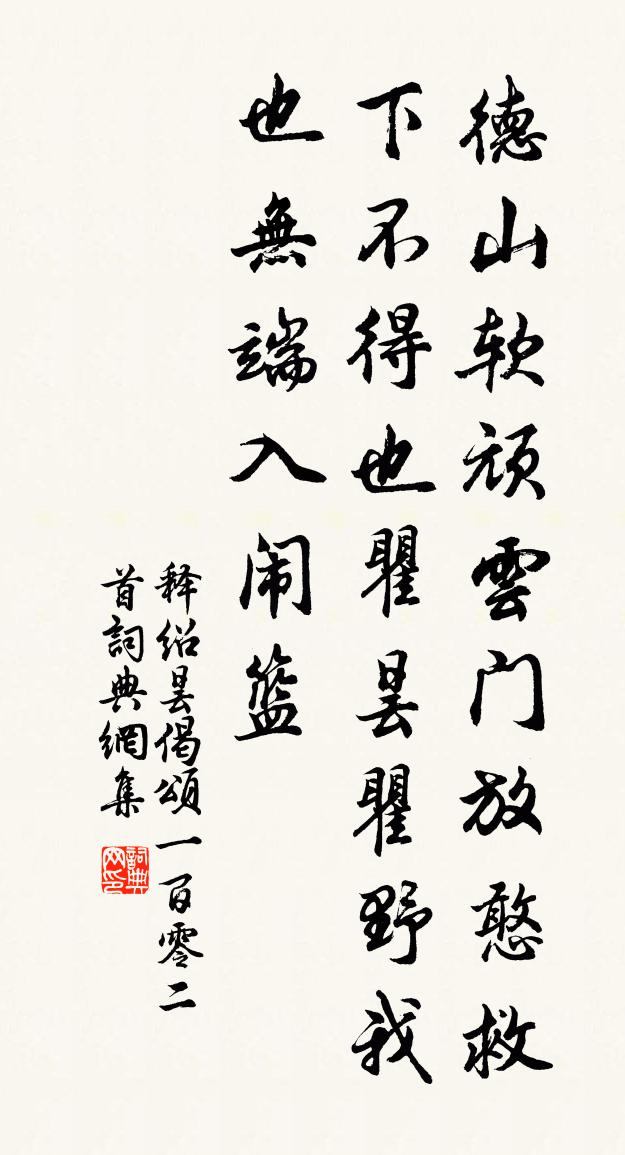 德山软顽雲门放憨救
下不得也瞿昙瞿野我
也無端入闹籃
释绍昙偈頌一百零二
首詞典網集
詞典
网印